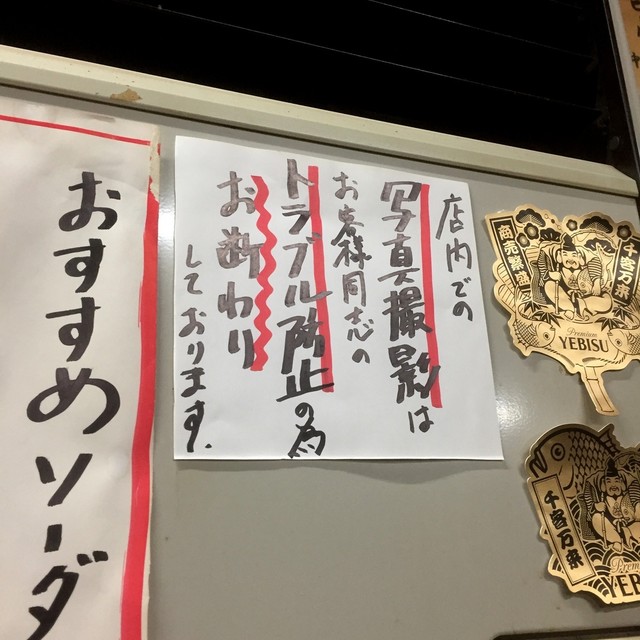 店内での
写真撮影は
お客様同志の
トラブル防止の為
お断わり
しております.
おすすめソーダ
商売繁盛
千客万来
Premium
YEBISU
千客万来